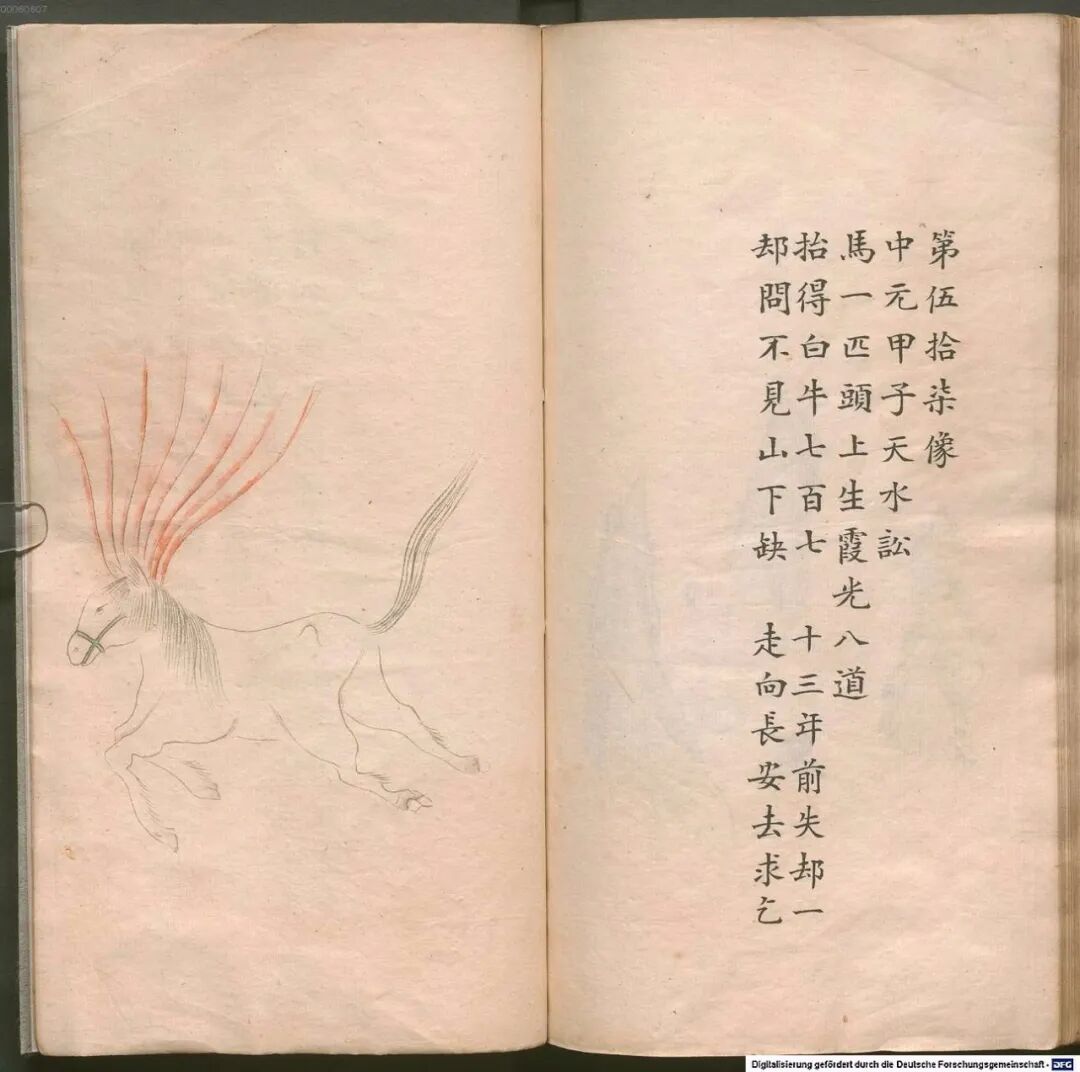 第伍拾柒像
中元甲子天水訟
馬一匹頭上生霞光八道
抬得白牛七百七 十三年前失却一
却問不見山下缺 走向長安去求乞
00060607
Digitalisierung gefördert durch die Deutsche Forschungsgemeinschaft - DFG